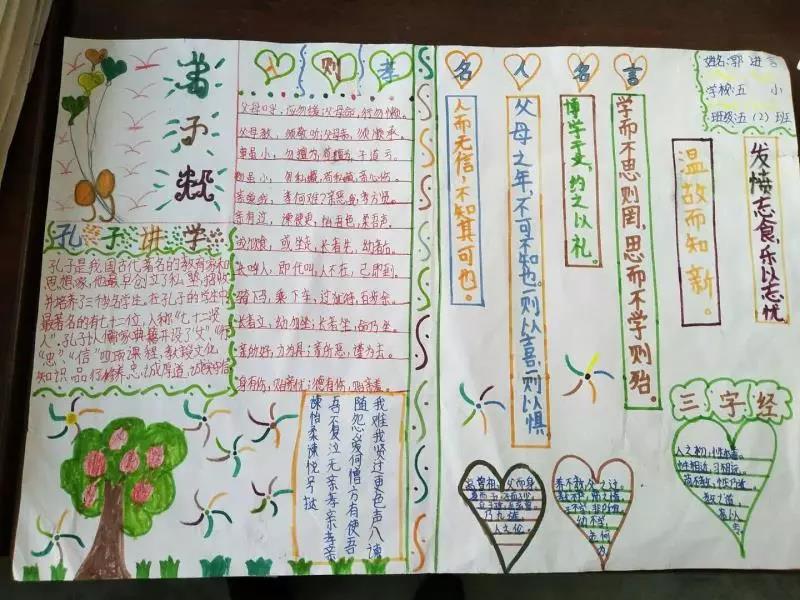 弟子规
入则孝
父母呼，应勿缓；父母命，行勿懒。
父母教，须敬听；父母责，须顺承。
事虽小，勿擅为；苟擅为，子道亏。
物虽小，勿私藏；苟私藏，亲心伤。
亲爱我，孝何难；亲恶我，孝方贤。
亲有过，谏使更，怡吾色，柔吾声。
或饮食，或坐走，长者先，幼者后。
长呼人，即代叫，人不在，己即到。
骑下马，乘下车，过犹待，百步余。
长者立，幼勿坐；长者坐，命乃坐。
亲所好，力为具；亲所恶，谨为去。
身有伤，贻亲忧；德有伤，贻亲羞。
孔子讲学
孔子是我国古代著名的教育家和
思想家，他最早创立了私塾，招收
并培养了三千名学生，在孔子的学生中
最著名的有七十二位，人称“七十二贤
人”。孔子以儒家典籍开设了“文”“行”
“忠”、“信”四项课程，教授文化
知识、品行修养、忠诚厚道、诚实守信
我难我贤过更色声入谏
随怨必爱何憎方有使吾
吾不复泣无亲孝亲孝亲
谏怡柔谏悦号挞
名人名言
人而无信，不知其可也。
父母之年，不可不知也。则以喜，一则以惧
博学于文，约之以礼。
学而不思则罔，思而不学则殆。
温故而知新。
发愤忘食，乐以忘忧
姓名：郭进言
学校：五小
班级：五（2）班
三字经
人之初，性本善。
性相近，习相远。
苟不教，性乃迁。
教之道
贵以专
养不教，父之过。
教不严，师之惰
子不学，非所宜
幼不学
老何为